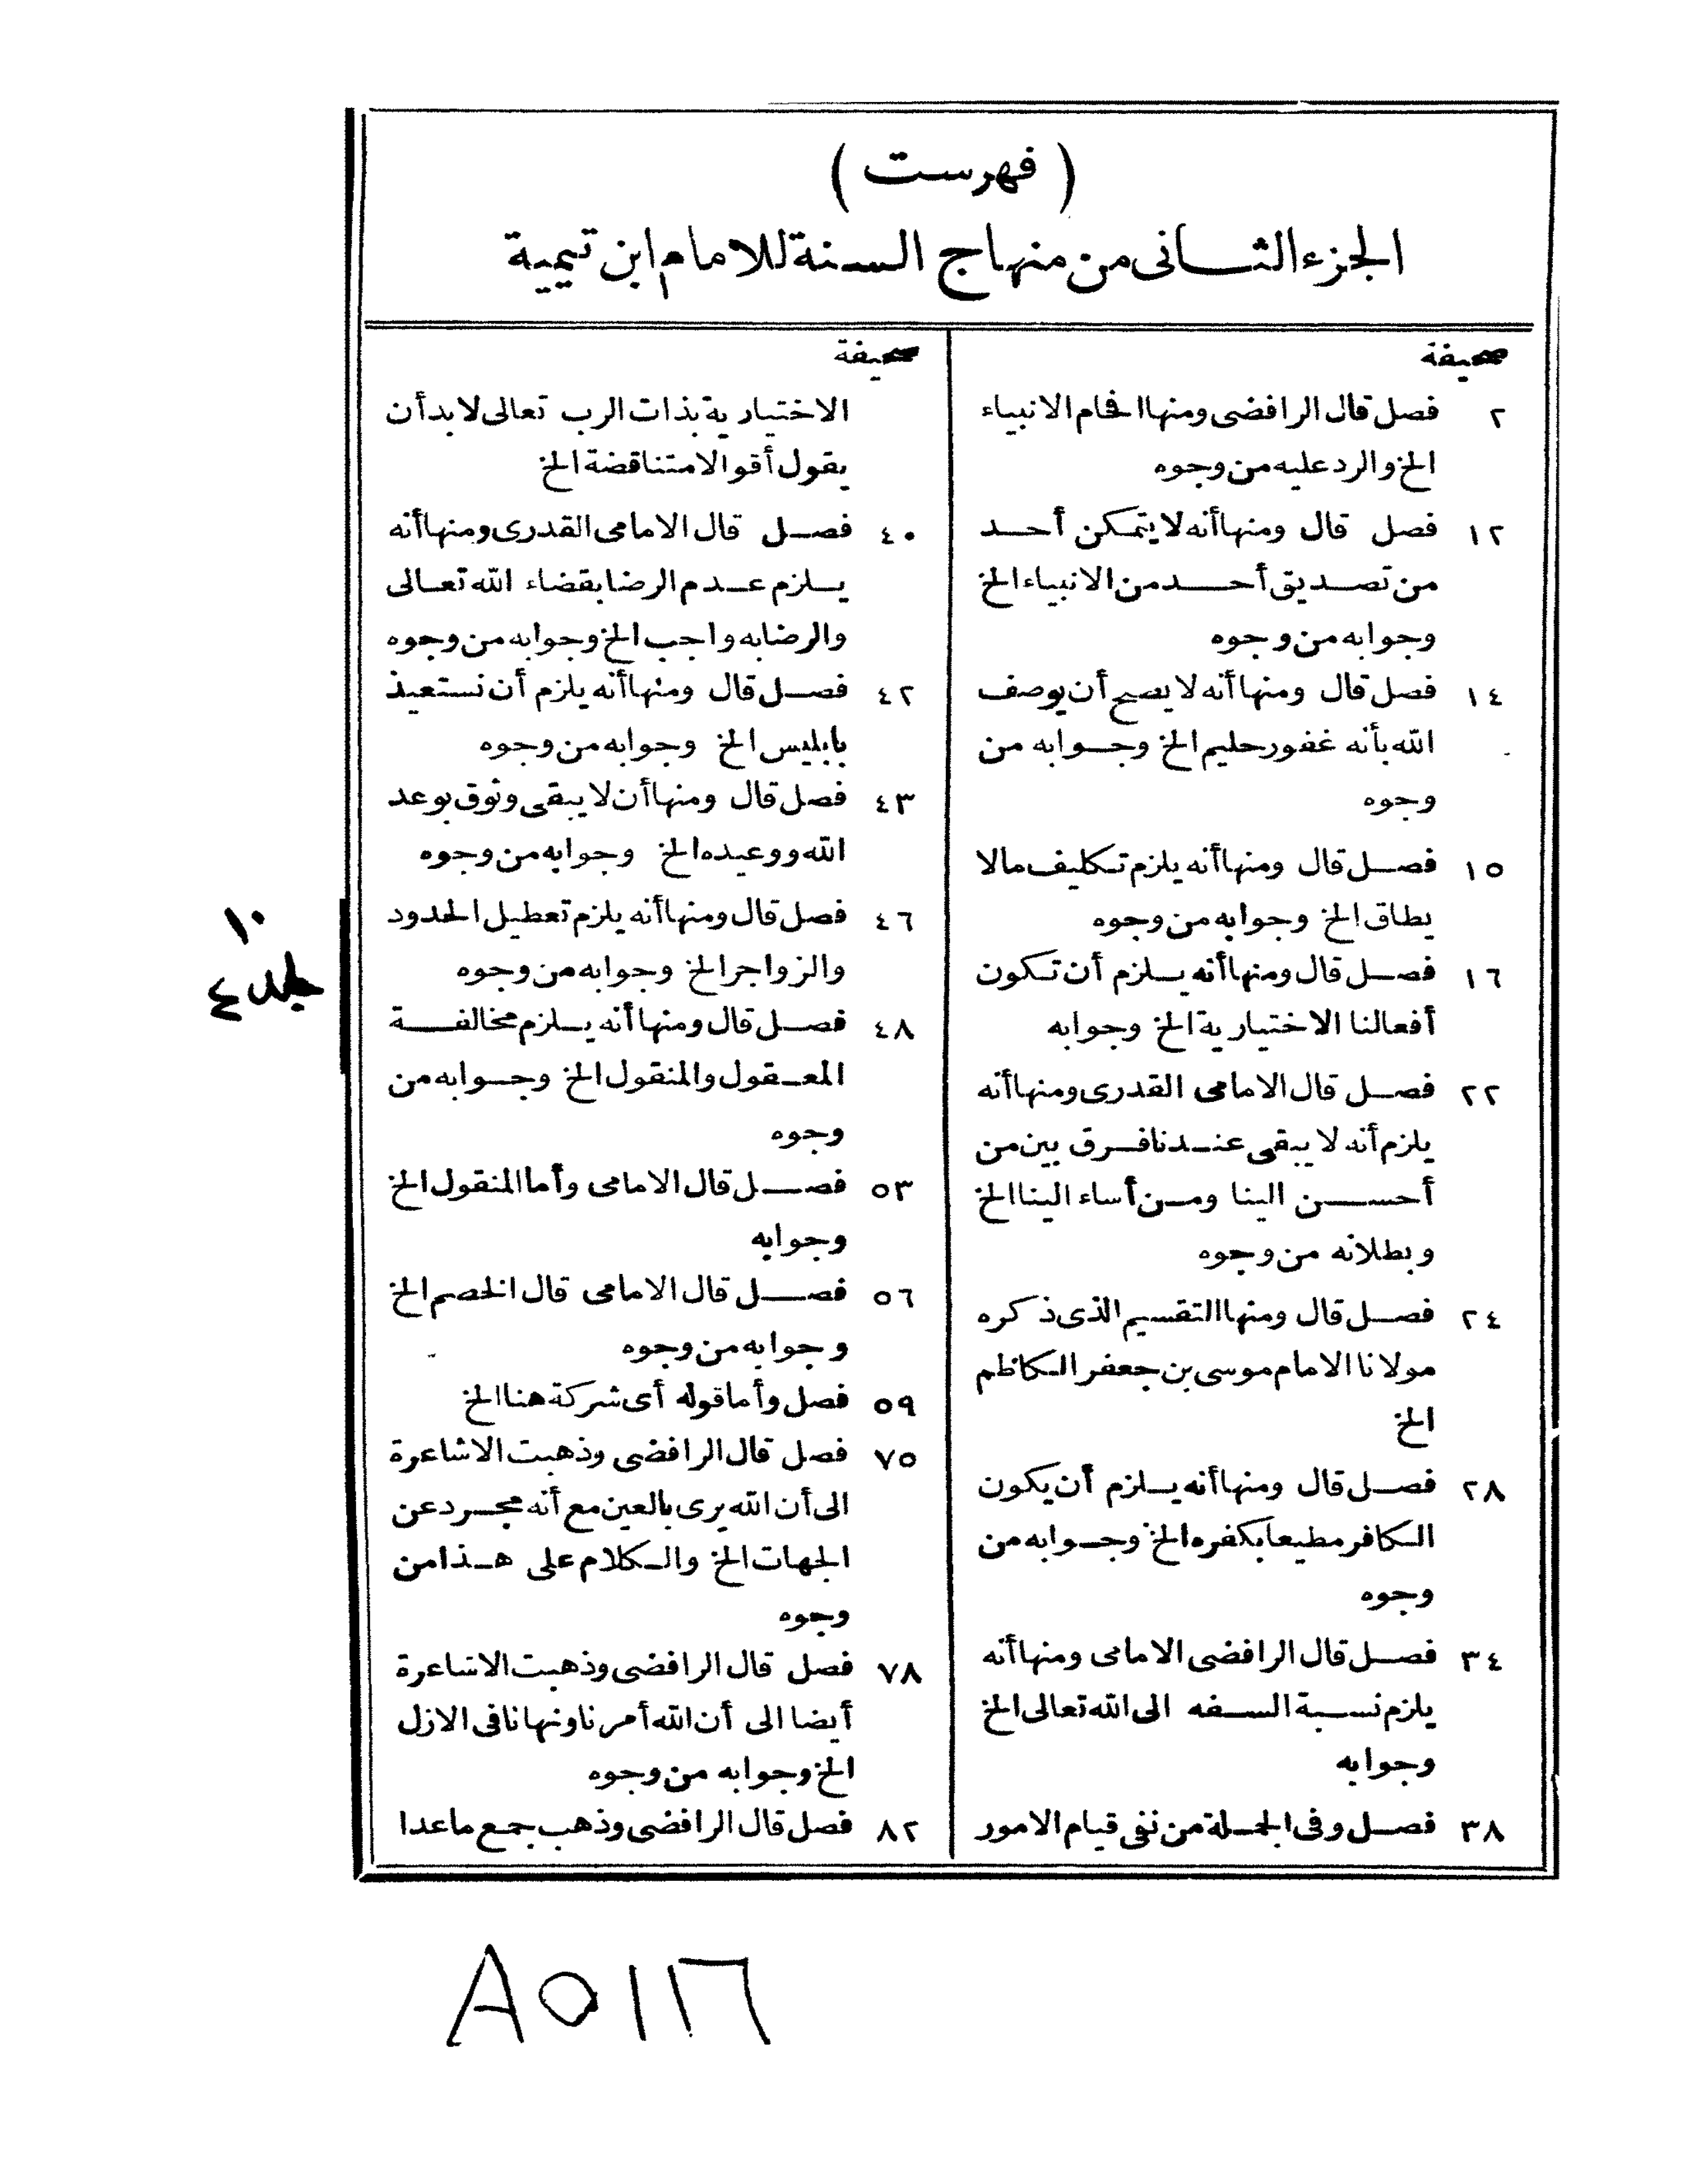 ( فهرست )
الجزء الثانى من منهاج السنة للامام ابن تيمية
صحيفة
٢ فصل قال الرافضى ومنها افحام الانبياء
الخ والرد عليه من وجوه
١٢ فصل قال ومنها أنه لا يتمكن أحد
من تصديق أحد من الانبياء الخ
وجوابه من وجوه
١٤ فصل قال ومنها أنه لا يصح أن يوصف
الله بأنه غفور حليم الخ وجوابه من
وجوه
١٥ فصل قال ومنها أنه يلزم تكليف مالا
يطاق الخ وجوابه من وجوه
١٦ فصل قال ومنها أنه يلزم أن تكون
أفعالنا الاختيارية الخ وجوابه
٢٢ فصل قال الامامى القدرى ومنها أنه
يلزم أنه لا يبقى عندنا فرق بين من
أحسن الينا ومن أساء الينا الخ
وبطلانه من وجوه
٢٤ فصل قال ومنها التقسيم الذى ذكره
مولانا الامام موسى بن جعفر الكاظم
الخ
٢٨ فصل قال ومنها أنه يلزم أن يكون
الكافر مطيعا بكفره الخ وجوابه من
وجوه
٣٤ فصل قال الرافضى الامامى ومنها أنه
يلزم نسبة السفه الى الله تعالى الخ
وجوابه
٣٨ فصل وفى الجملة من نفى قيام الامور
صحيفة
الاختيارية بذات الرب تعالى لا بد أن
يقول أقوالا متناقضة الخ
٤٠ فصل قال الامامى القدرى ومنها أنه
يلزم عدم الرضا بقضاء الله تعالى
والرضا به واجب الخ وجوابه من وجوه
٤٢ فصل قال ومنها أنه يلزم أن نستعيذ
بابليس الخ وجوابه من وجوه
٤٣ فصل قال ومنها أن لا يبقى وثوق بوعد
الله ووعيده الخ وجوابه من وجوه
٤٦ فصل قال ومنها أنه يلزم تعطيل الحدود
والزواجر الخ وجوابه من وجوه
٤٨ فصل قال ومنها أنه يلزم مخالفة
المعقول والمنقول الخ وجوابه من
وجوه
٥٣ فصل قال الامامى وأما المنقول الخ
وجوابه
٥٦ فصل قال الامامى قال الخصم الخ
وجوابه من وجوه
٥٩ فصل وأما قوله أى شركة هنا الخ
٧٥ فصل قال الرافضى وذهبت الاشاعرة
الى أن الله يرى بالعين مع أنه مجرد عن
الجهات الخ والكلام على هذا من
وجوه
٧٨ فصل قال الرافضى وذهبت الاشاعرة
أيضا الى أن الله أمرنا ونهانا فى الازل
الخ وجوابه من وجوه
٨٢ فصل قال الرافضى وذهب جمع ما عدا
١٠
جلد ٤
٨٥١١٦